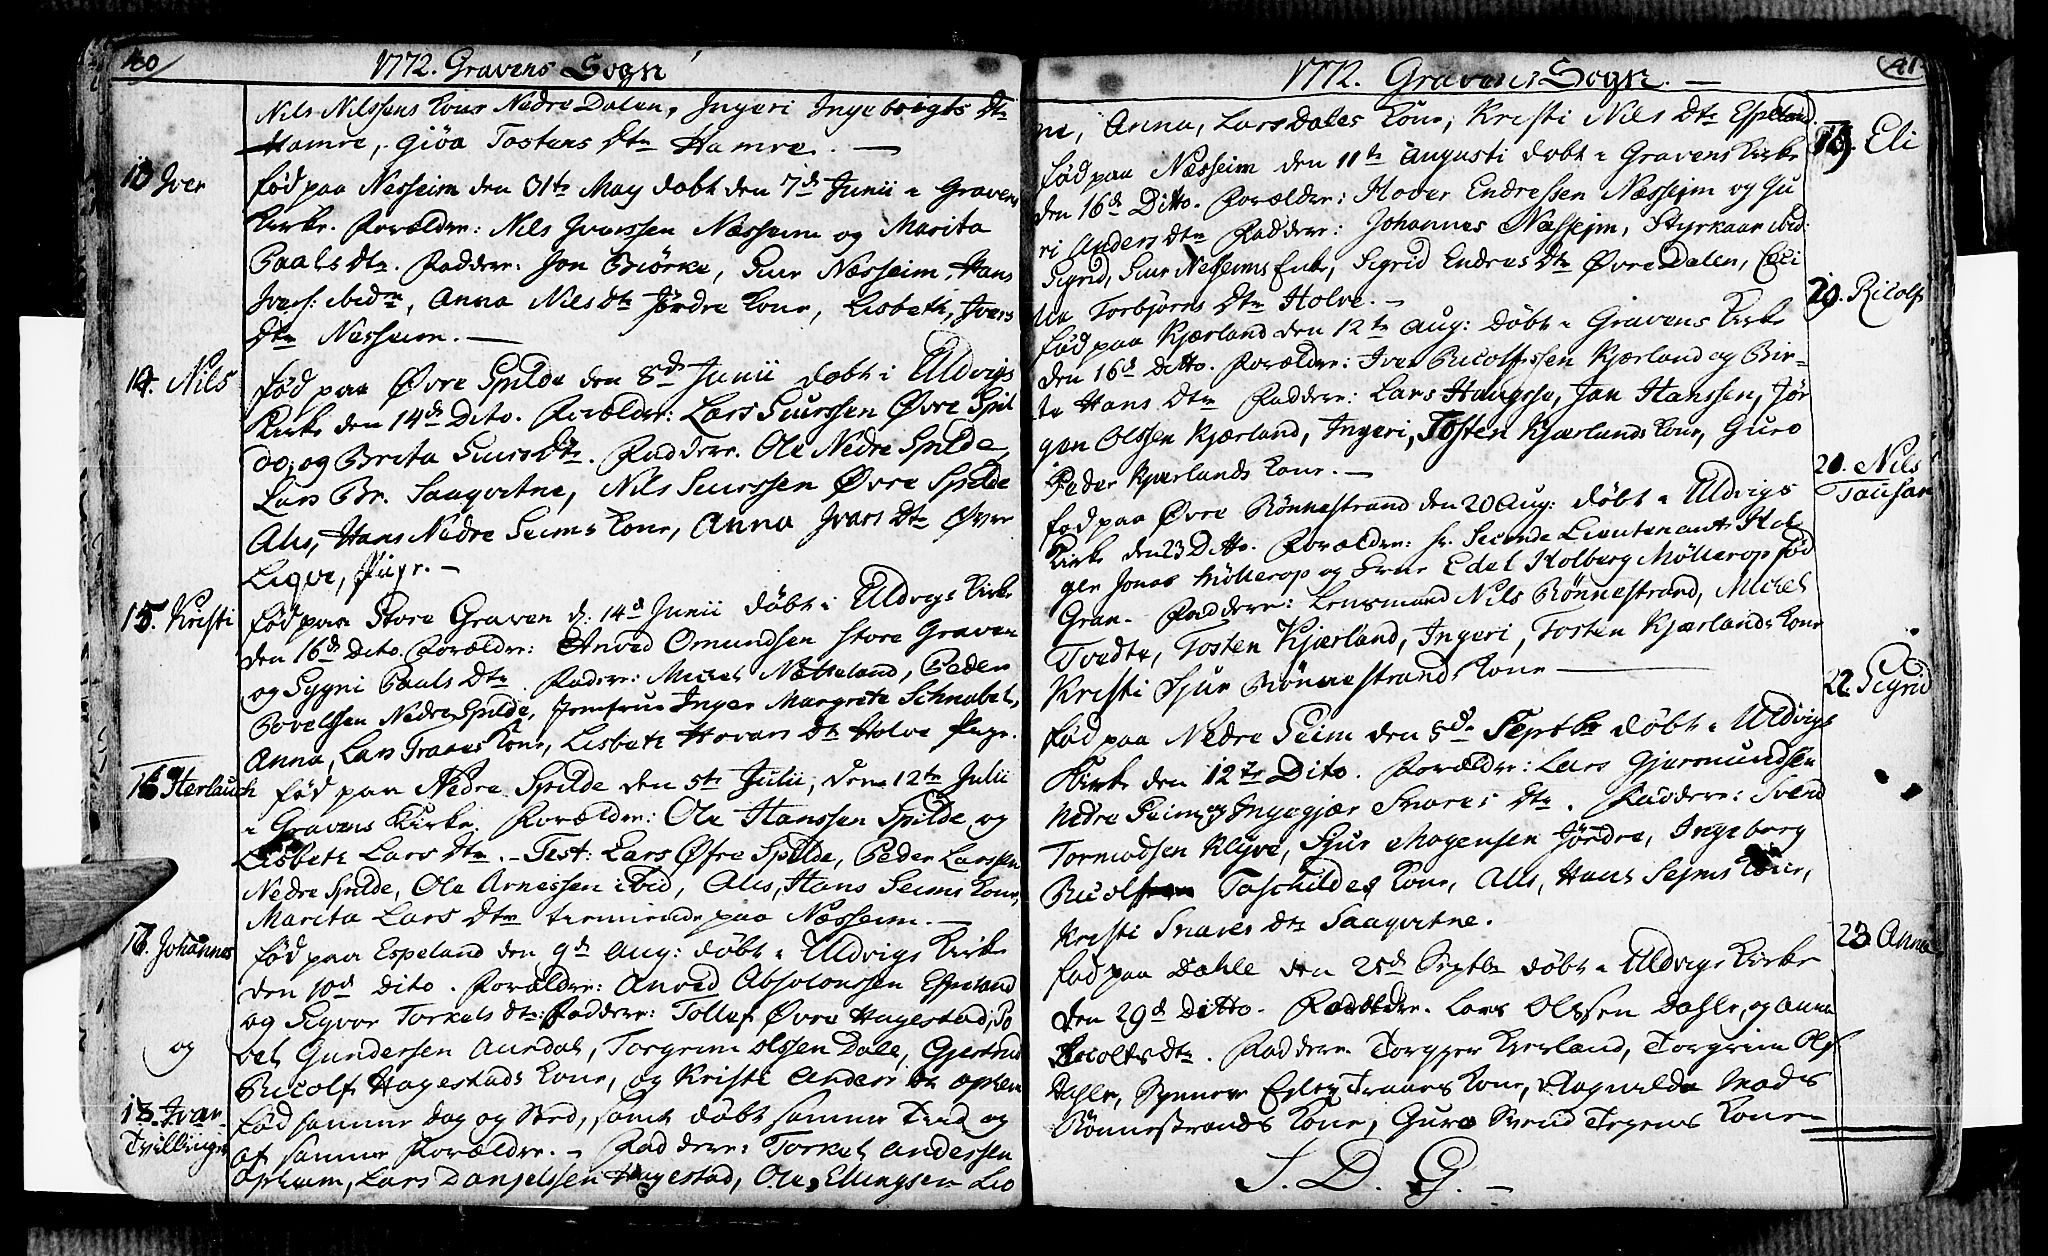 40
1772. Gravens Sogn
Nils Nilssens Kone Nedre Dalen, Ingeri Ingebrigts Dtr
Hamre, Giøa Tostens Dtr Hamre. —
13 Iver
fød paa Nesheim den 31te May døbt den 7d Junii i Gravens
Kirke. Forældre: Nils Ivarssen Næsheim og Marita
Paals Dtr. Faddere: Jon Biörke, Siur Næsheim, Hans
Ivers: ibidm, Anna Nils Dtr Jördre Kone, Lisbeth, Ivers
Dtr Nesheim. —
14. Nils
fød paa Øvre Spilde den 8d Junii døbt i Uldvigs
Kirke den 14d Dito. Forældre: Lars Siurssen Øvre Spil
de, og Brita Siurs Dtr. Faddere. Ole Nedre Spilde,
Lars Br. Saaqvitne, Nils Siurssen Øvre Spilde
Alis, Hans Nedre Seims Kone, Anna Ivars Dtr Øvre
Leqve, Pige. —
15. Kristi
fød paa Store Graven d: 14d Junii døbt i Uldvigs Kirke
den 16d Dito. Forældre: Anved Omundsen Store Graven
og Sygni Paals Dtr. Fadere: Michel Nætteland, Peder
Povelssen Nedre Spilde, Jomfrue Inger Margrete Schnabel,
Anna, Lars Traaes Kone, Lisbeth Hovars Dtr Holve Pige.
16 Herlauch
fød paa Nedre Spilde den 5te Julii, den 12te Julii
i Gravens Kirke. Forældre: Ole Hanssen Spilde og
Lisbeth Lars Dtr. - Test: Lars Øfre Spilde, Peder Larssen
Nedre Spilde, Ole Arnessen ibid, Alis, Hans Seims Kone,
Marita Lars Dtr tienende paa Næsheim. —
Johannes
fød paa Espeland den 9d Aug: døbt i Uldvigs Kirke
den 10d Dito. Forældre: Anved Absolonssen Espeland
og Sigvor Torkels Dtr: Faddere: Tollef Øvre Hagestad, Po
og
vel Gundersen Aurdal, Torgrim Olssen Dale, Gjertrud
Ricolf Hagestads Kone, og Kristi Anders Dtr Ophem
18. Ivar
fød samme Dag og Sted, samt døbt samme Tid og
Tvillinger
af samme Forældre. - Faddere: Torkel Andessen
Ophem, Lars Danjelssen Hagestad, Ole Ellingsen Leo
41
1772. Gravens Sogn. —
ne, Anna, Lars Dales Kone, Kristi Nils Dtr Espeland.
19. Eli
fød paa Næsheim den 11te Augusti døbt i Gravens Kirke
den 16d Ditto. Forældre: Hover Endressen Næsheim og Gu
ri Anders Dtr Faddere: Johannes Næsheim, Styrkaar ibid:
Sigrid, Siur Nesheims Enke, Sigrid Endres Dtr Øvre Dalen, Ceci
lia Torbjørns Dtr Holve. —
20. Ricolf
fød paa Kjærland den 12te Aug: døbt i Gravens Kirke
den 16d Ditto. Forældre: Iver Ricolfssen Kjærland og Bir-
te Hans Dtr Faddere: Lars Haugse, Jan Hanssen, Jör
gen Olssen Kjærland, Ingeri, Tosten Kjærlands Kone, Guro
Peder Kjærlands Kone. —
21. Nils
Tausan
fød paa Øvre Rönnestrand den 20 Aug: døbt i Uldvigs
Kirke den 23 Ditto. Forældre: hr. Seconde Lieutenant Hol
ger Jonas Möllerop og Frue Edel Holberg Möllerop fød
Gran. Faddere: Lensmand Nils Rönnestrand, Michel
Tvedte, Tosten Kjærland, Ingeri, Tosten Kjærlands Kone
Kristi Sjur Rönnestrands Kone —
22. Sigrid
fød paa Nedre Seim den 8d Septbr døbt i Uldvigs
Kirke den 12te Dito. Forældre: Lars Gjermundsen
Nedre Seim og Ingegjær Snares Dtr. Faddere: Svend
Tormodsen Klyve, Sjur Mogensen Jördre, Ingeborg
Ricolf Toschildes Kone, Alis, Hans Sejms Kone,
Kristi Snares Dtr Saaqvitne.
23. Anna
fød paa Dahle den 25d Septbr døbt i Uldvigs Kirke
den 29d Ditto. Forældre. Lars Olssen Dahle, og Anna
Dtr. Faddere. Torgger Kierland, Torgrim Ols
Dahle, Traaes Kone, Ragnilda Mads
Rönnestrands Kone, Guro Svend Tegens Kone
S. D. G. —